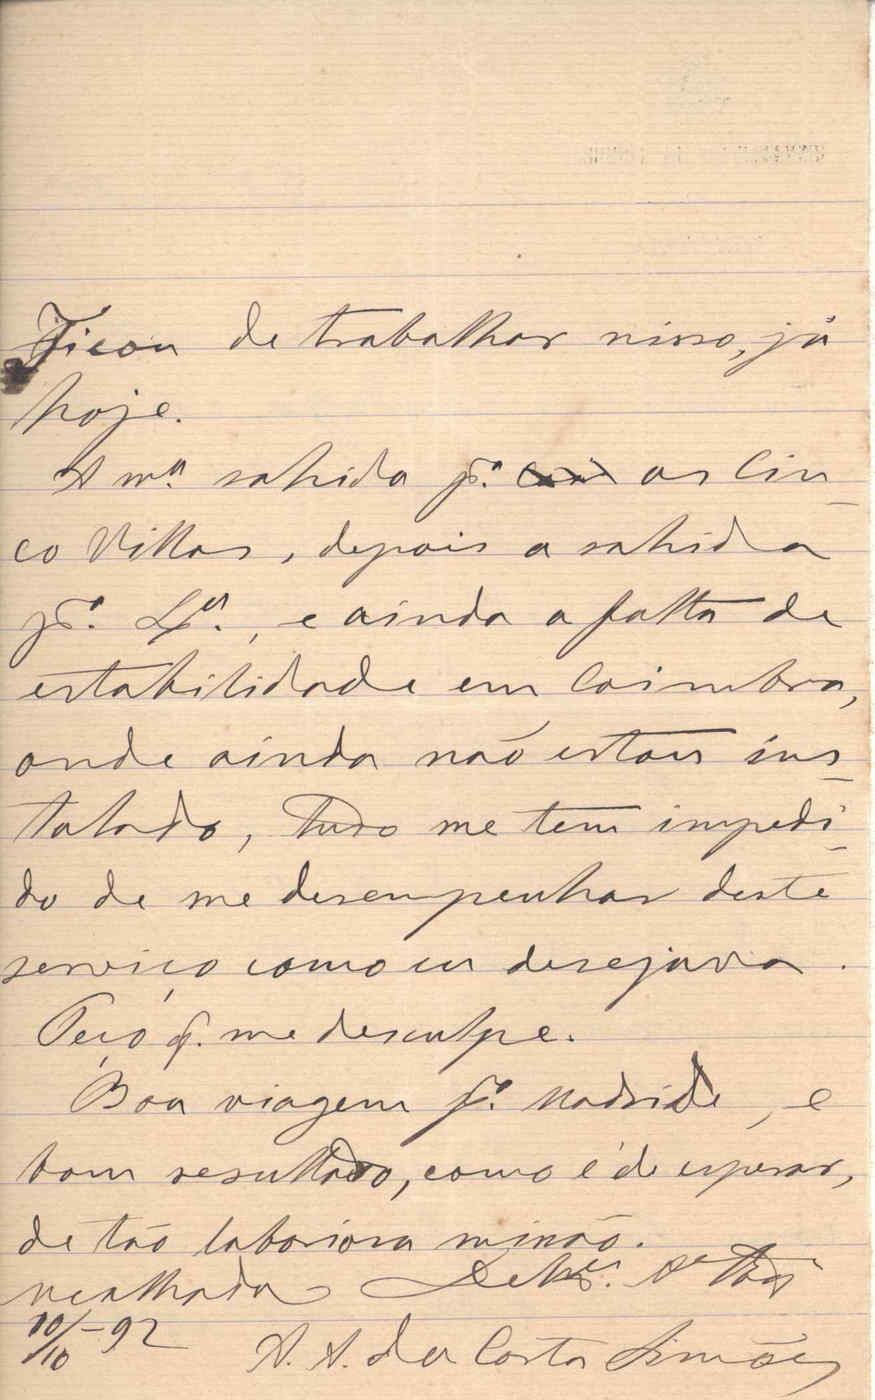 Ficou de trabalhar nisso, já
hoje.
A mª sahida pª as Cin-
co Villas, depois a sahida
pª Lxª, e ainda a falta de
estabilidade em Coimbra,
onde ainda não estou ins-
talado, tudo me tem impedi-
do de me desempenhar deste
serviço como eu desejava.
Peço q. me desculpe.
Boa viagem pª Madride, e
bom resultado, como é de esperar,
de tão laboriosa missão.
Mealhada
10/10-92 A. A. da Costa Simões